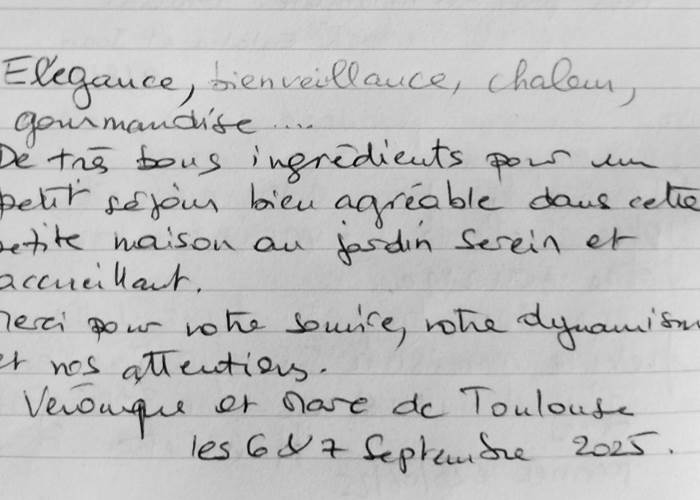 Elégance, bienveillance, chaleur,
gourmandise....
De très bons ingrédients pour un
petit séjour bien agréable dans cette
petite maison au jardin serein et
accueillant.
Merci pour votre sourire, votre dynamisme
et nos attentions.
Véronique et Marc de Toulouse
les 6 & 7 Septembre 2025.